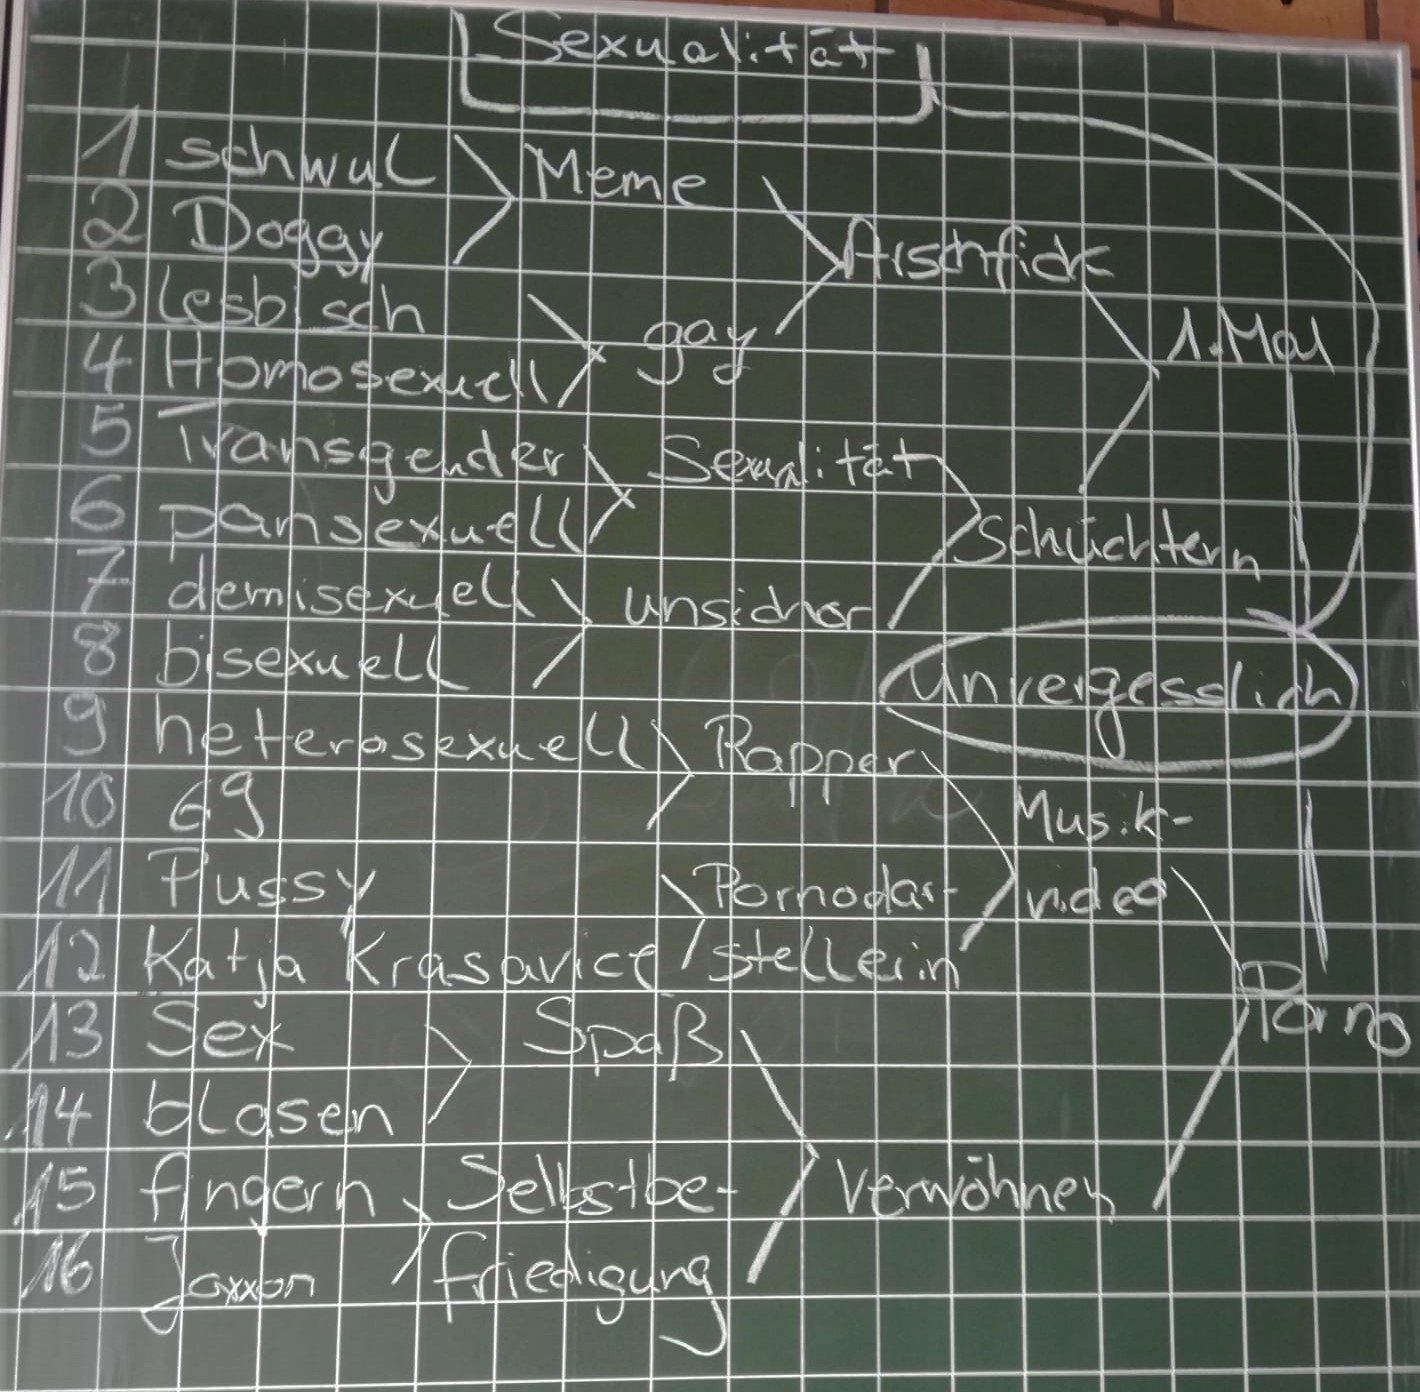 Sexualität
1 schwul
2 Doggy
3 lesbisch
4 Homosexuell
5 Transgender
6 pansexuell
7 demisexuell
8 bisexuell
9 heterosexuell
10 69
11 Pussy
12 Katja Krasavice
13 Sex
14 blasen
15 fingern
16 Jaxxon
Meme
gay
Sexualität
unsicher
Rapper
Pornodar-
stellerin
Spaß
Selbstbe-
friedigung
Arschfick
Schüchtern
Musik-
video
Verwöhnen
1. Mal
Porno
unvergesslich